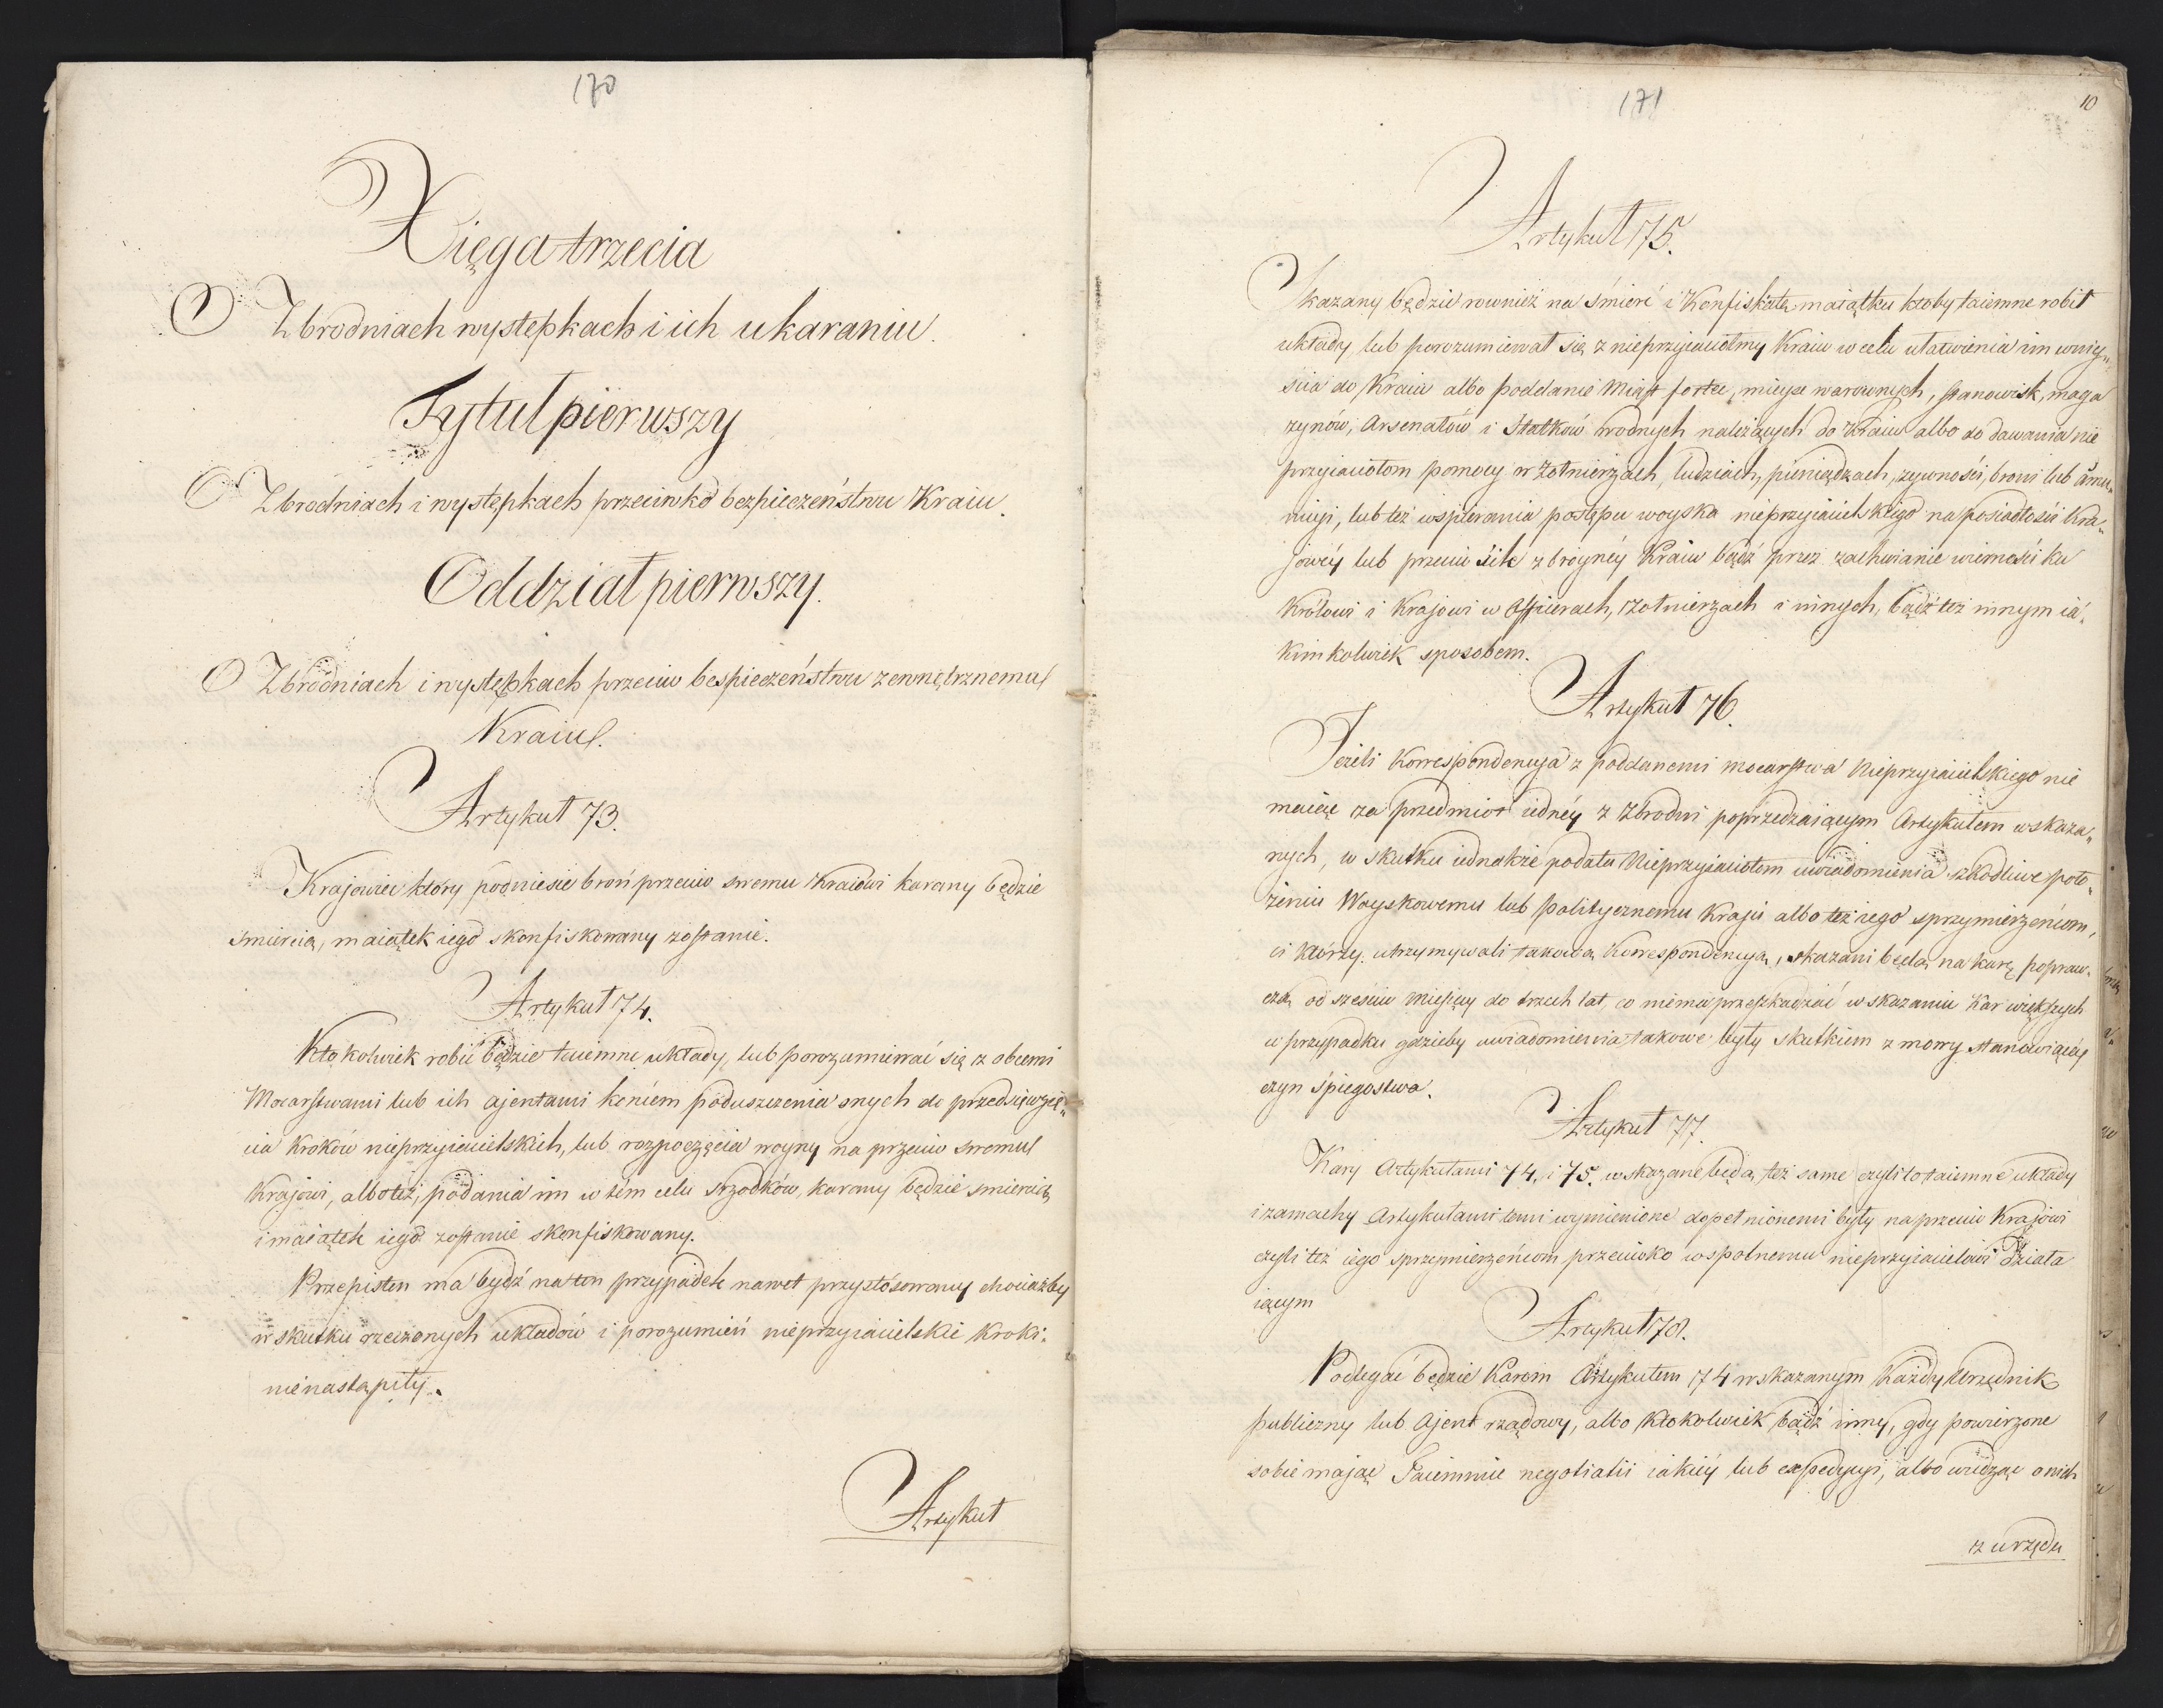 170
Xięga trzecia
O Zbrodniach występkach i ich ukaraniu.
Tytuł pierwszy
O Zbrodniach i występkach przeciwko bezpieczeństwu Kraiu.
Oddział pierwszy.
O Zbrodniach i występkach przeciw bespieczeństwu zewnętrznemu
Kraiu.
Artykuł 73.
Krajowiec który podniesie broń przeciw swemu Kraiowi karany będzie
śmiercią, maiątek iego skonfiskowany zostanie.
Artykuł 74.
Ktokolwiek robić będzie taiemne układy, lub porozumiewać się z obcemi
Mocarstwami lub ich ajentami końcem poduszczenia onych do przedsięwzię„
cia kroków nieprzyiacielskich, lub rozpoczęcia woyny na przeciw swemu
Krajowi, albo też, podania im w tém celu srzodków, karany będzie smiercią
i maiątek iego zostanie skonfiskowany.
Przepis ten ma bydź na ten przypadek nawet przystósowany chociażby
w skutku rzeczonych układów i porozumień nieprzyiacielskie kroki
nienastąpiły.
Artykuł
171
10
Artykuł 75.
Skazany będzie rownież na śmierć i Konfiskatę maiątku ktoby taiemne robił
układy, lub porozumiewał się z nieprzyiaciołmy Kraiu w celu ułatwienia im wniy„
scia do Kraiu albo poddanie Miast fortec, mieysc warownych, stanowisk, maga
zynów, Arsenałów i Statków wodnych należących do Kraiu albo do dawania nie
przyiaciołom pomocy w Żołnierzach, ludziach, pieniądzach, zywności, broni lub amu„
nicyi, lub też wspierania postępu woyska nieprzyiacielskiego na posiadłości Kra„
jowéy lub przeciw sile zbroynéy Kraiu bądź przez zachwianie wierności ku
Królowi i Krajowi w Officerach, Żołnierzach i innych, bądź też innym ia„
kimkolwiek sposobem.
Artykuł 76.
Jeżeli Korrespondencya z poddanemi mocarstwa Nieprzyiacielskiego nie
maiąc za przedmiot iednéy z Zbrodni poprzedzaiącym Artykułem wskaza„
nych, w skutku iednakże podała Nieprzyiaciołom uwiadomienia szkodliwe poło„
żeniu Woyskowemu lub politycznemu Kraju albo też iego sprzymierzeńcom,
ci którzy utrzymywali takową Korrespondencyą, skazani będą na karę popraw„
czą od sześciu miesięcy do trzech lat, co niema przeszkadzać wskazaniu Kar większych
w przypadku gdzieby uwiadomienia takowe były skutkiem zmowy stanowiącéy
czyn śpiegostwa.
Artykuł 77.
Kary Artykułami 74. i 75. wskazane będą też same czyli to taiemne układy
i zamachy Artykułami temi wymienione dopełnionemi były na przeciw Krajowi
czyli też iego sprzymierzeńcom przeciwko wspolnemu nieprzyiacielowi Działa
iącym
Artykuł 78.
Podlegać będzie Karom Artykułem 74 wskazanym Każdy Urzędnik
publiczny lub Ajent rządowy, albo ktokolwiek bądź inny, gdy powierzone
sobie maiąc Taiemnie negotiatii iakiéy lub expedycyi, albo wiedząc o nich
z urzędu